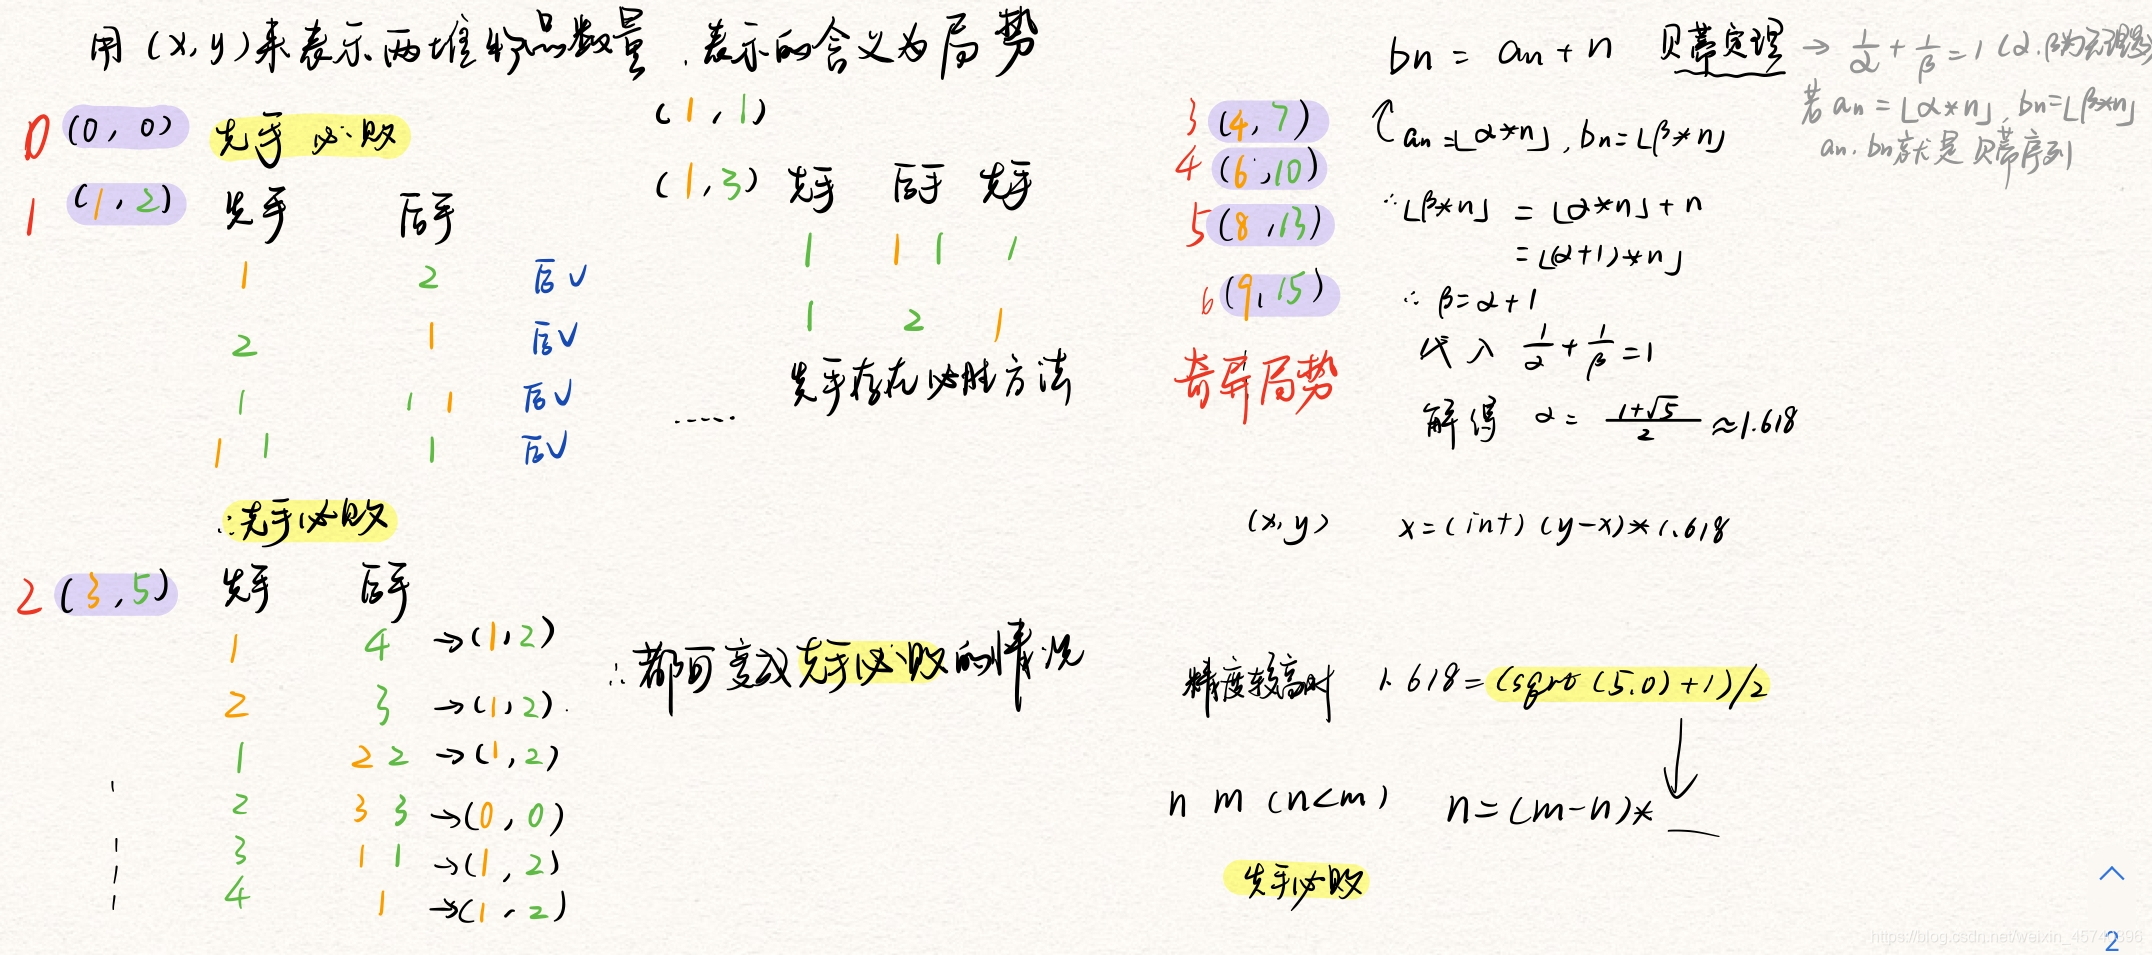 用 (x, y) 来表示两堆物品数量 . 表示的含义为局势
0 (0, 0) 先手必败
1 (1, 2) 先手 后手
1 2 后√
2 1 后√
1 1 1 后√
1 1 1 后√
∴先手必败
2 (3, 5) 先手 后手
1 4 →(1, 2)
2 3 →(1, 2).
1 2 2 →(1, 2)
2 3 3 →(0, 0)
3 1 1 →(1, 2)
4 1 →(1, 2)
∴都可变成先手必败的情况
(1, 1)
(1, 3) 先手 后手 先手
1 1 1 1
1 2 1
先手存在必胜方法
......
3 (4, 7)
4 (6, 10)
5 (8, 13)
6 (9, 15)
奇异局势
bn = an + n 贝蒂定理 → 1/α + 1/β = 1 (α.β为无理数)
若 an = ⌊α*n⌋, bn=⌊β*n⌋
an. bn就是贝蒂序列
an =⌊α*n⌋, bn=⌊β*n⌋
∵⌊β*n⌋ = ⌊α*n⌋ + n
= ⌊(α+1)*n⌋
∴ β=α+1
代入 1/α + 1/β = 1
解得 α = (1+√5)/2 ≈1.618
(x, y) x = (int) (y-x)*1.618
精度较高时 1.618 = (sqrt (5.0) +1)/2
n m (n<m) n = (m-n)*
先手必败
https://blog.csdn.net/weixin_4574
2